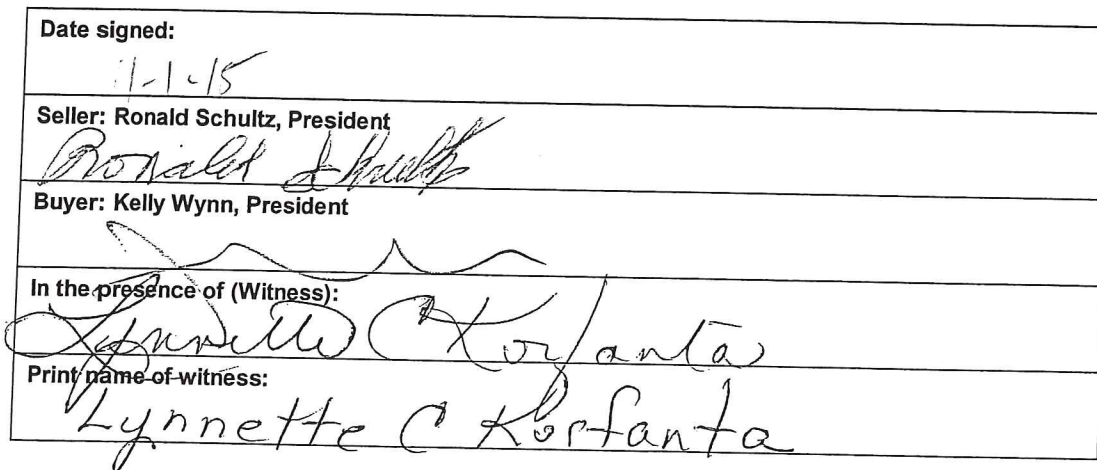 Date signed:
11-1-15
Seller: Ronald Schultz, President
Ronald Schultz
Buyer: Kelly Wynn, President
In the presence of (Witness):
Lynnette C Korfanta
Print name of witness:
Lynnette C Korfanta